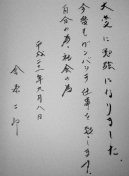 大変に勉強になりました。
今後もガンバッテ仕事を致します。
自分の為、社会の為
平成二十一年六月八日